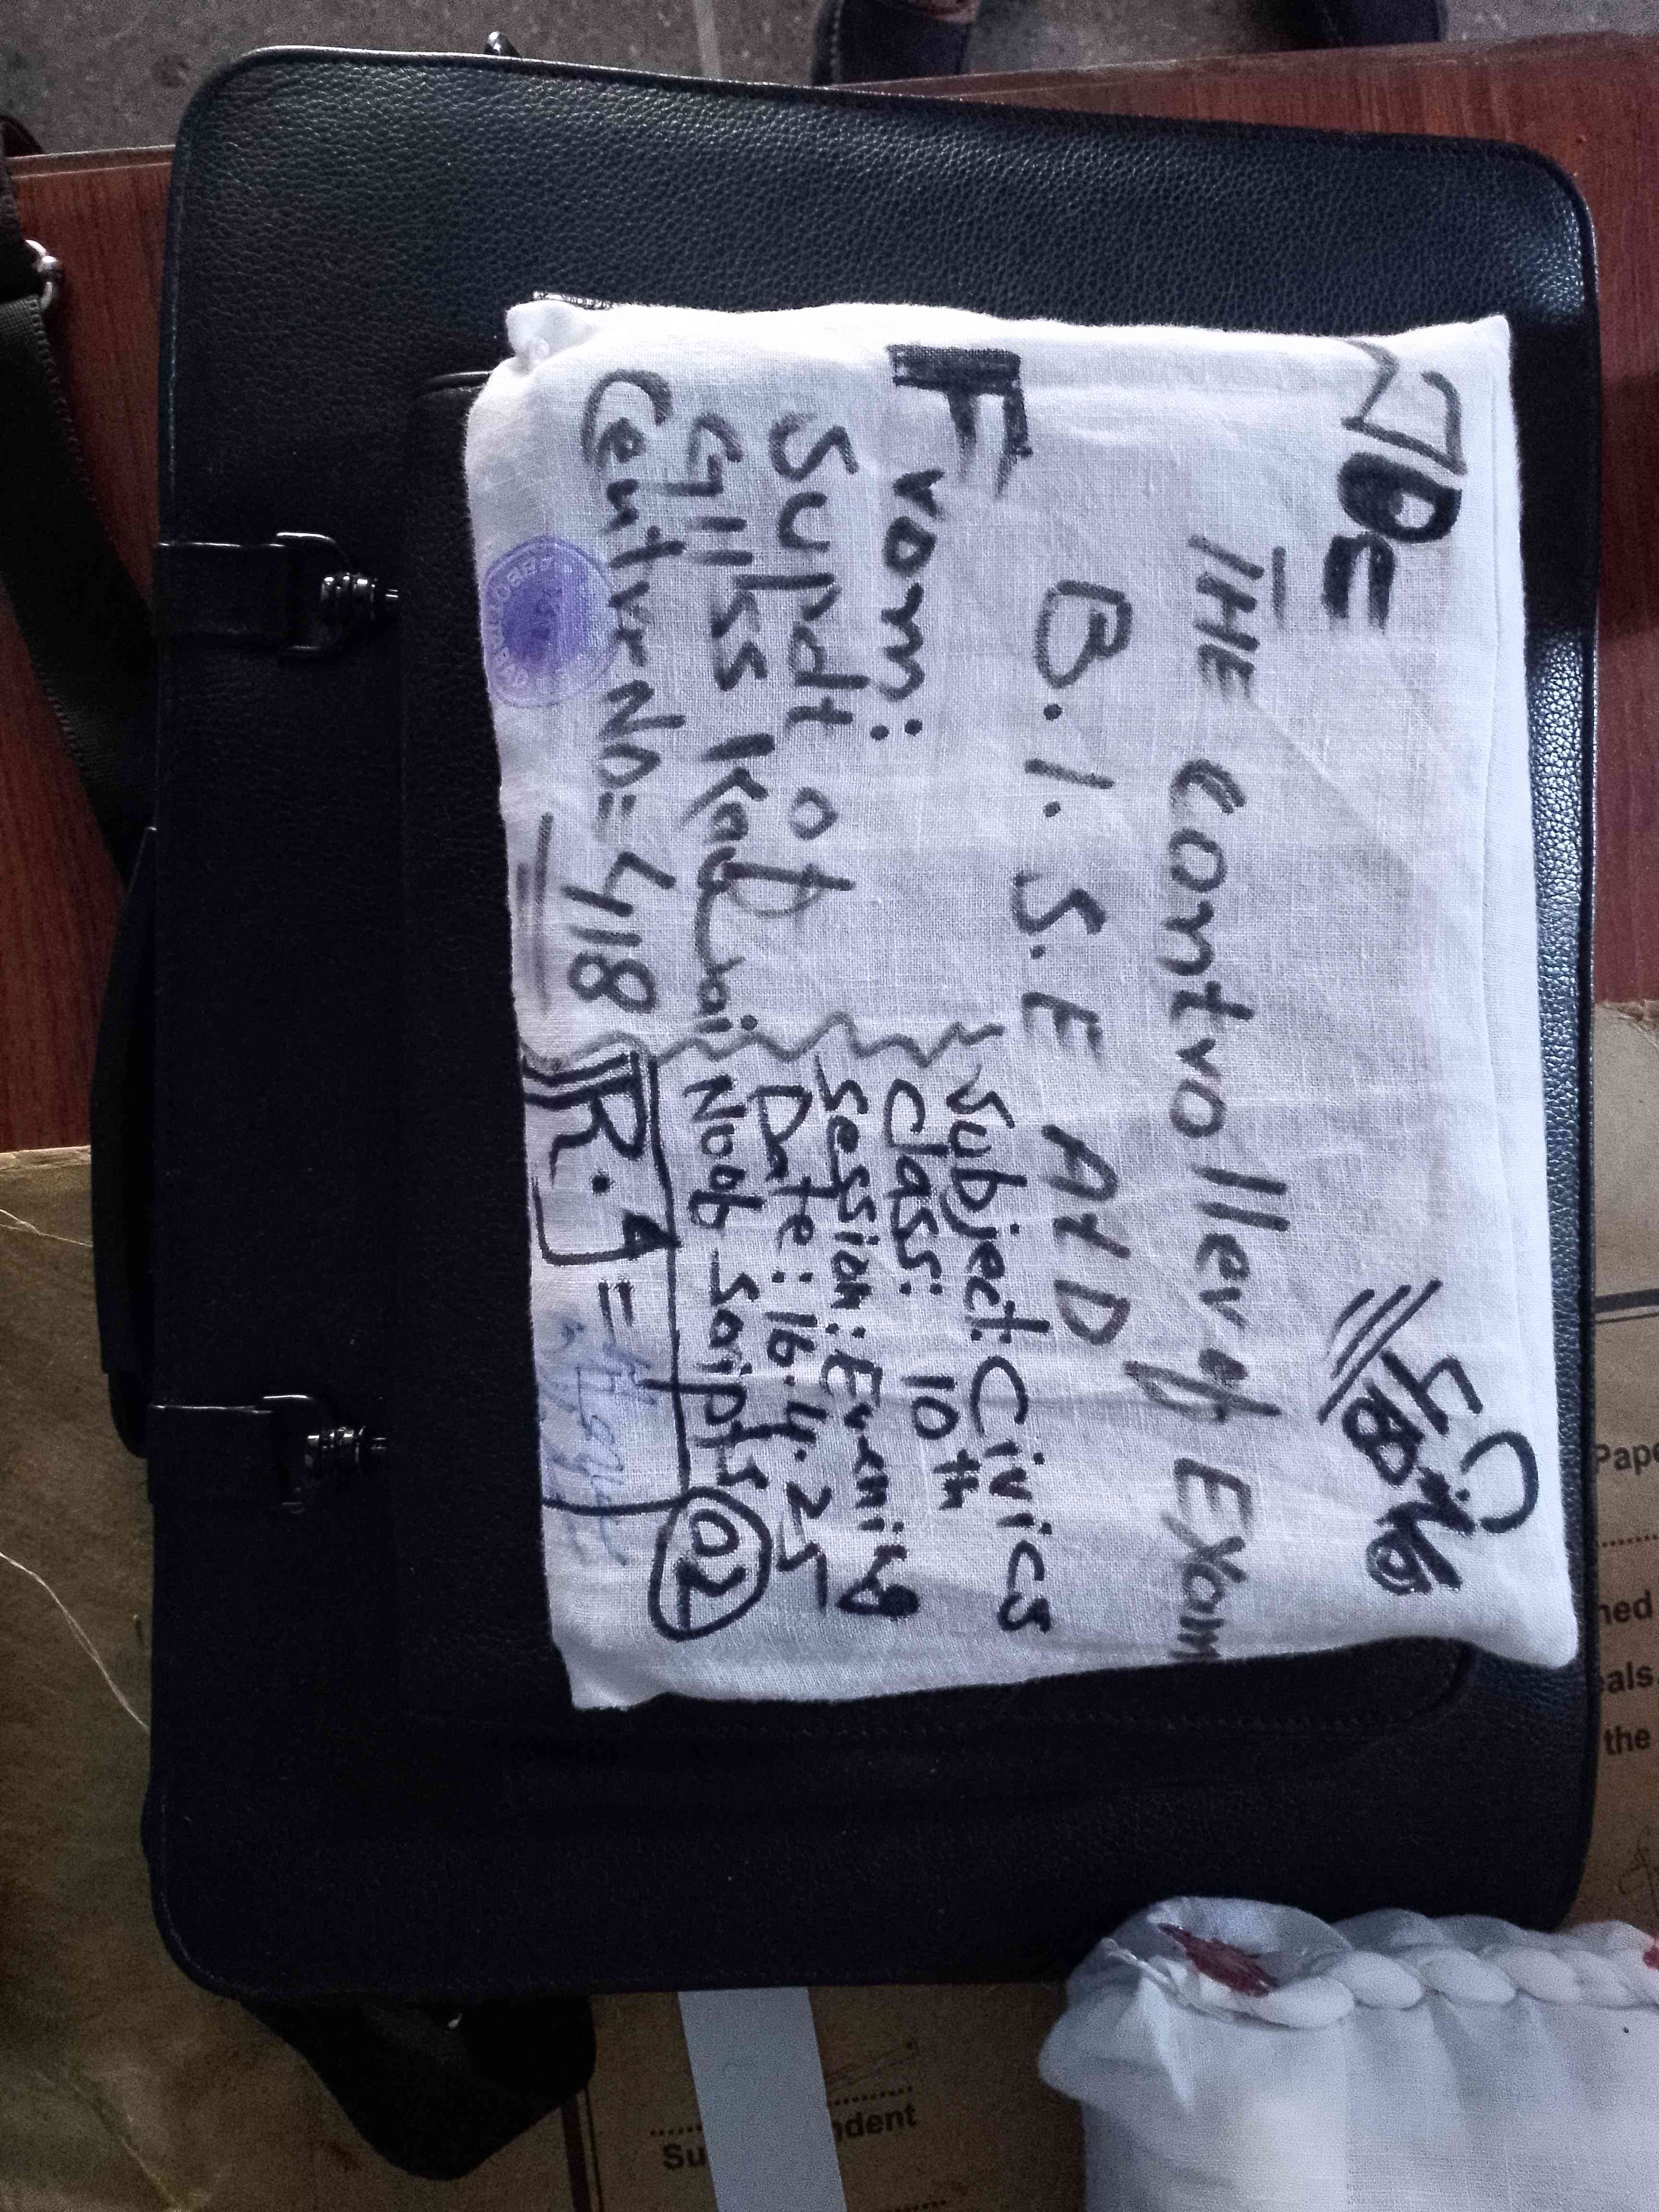 THE Controller of Exam
B.I.S.E ATD
From:
Supdt of
Centre No = 418
Subject: Civics
Class: 10th
Session: Evening
Date: 16.4.25
No of Scripts 02
R.1 =
Su
ndent
Pape
ned
eals.
the